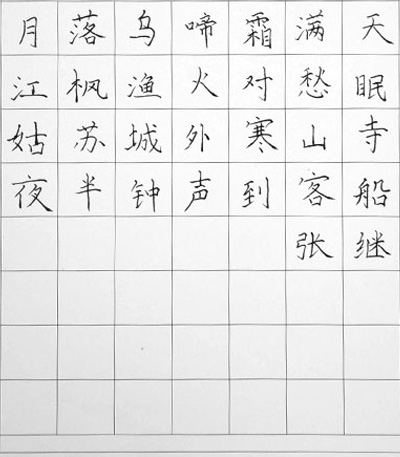 月落乌啼霜满天
江枫渔火对愁眠
姑苏城外寒山寺
夜半钟声到客船
张继